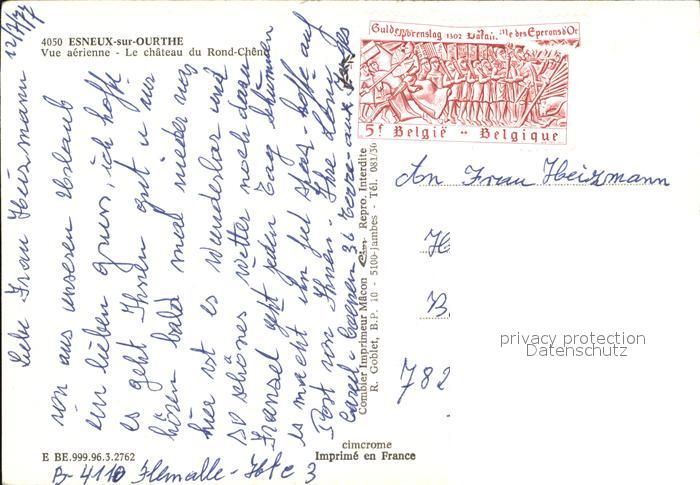 4050 ESNEUX-sur-OURTHE
Vue aérienne - Le château du Rond-Chêne
Liebe Frau Heizmann 12/7/77
von aus unseren Urlaub
ein lieben gruss, ich hoffe
es geht Ihnen gut u wir
hören bald mal wieder von
hier ist es wunderbar und
so schönes Wetter noch dazu
Fransel geht jeden Tag schwimmen
es macht ihn fiel spas - hoffe auf
Post von Ihnen - Ihre
36
B-4110 Flemalle-Hte 3
E BE.999.96.3.2762
Combier Imprimeur Mâcon Cim Repro. Interdite
R. Goblet, B.P. 10 - 5100-Jambes - Tél. 081/30
cimcrome
Imprimé en France
Guldensporenslag 1302 Bataille des Eperons d'Or
5F België - Belgique
An Frau Heizmann
H
B
782
privacy protection
Datenschutz